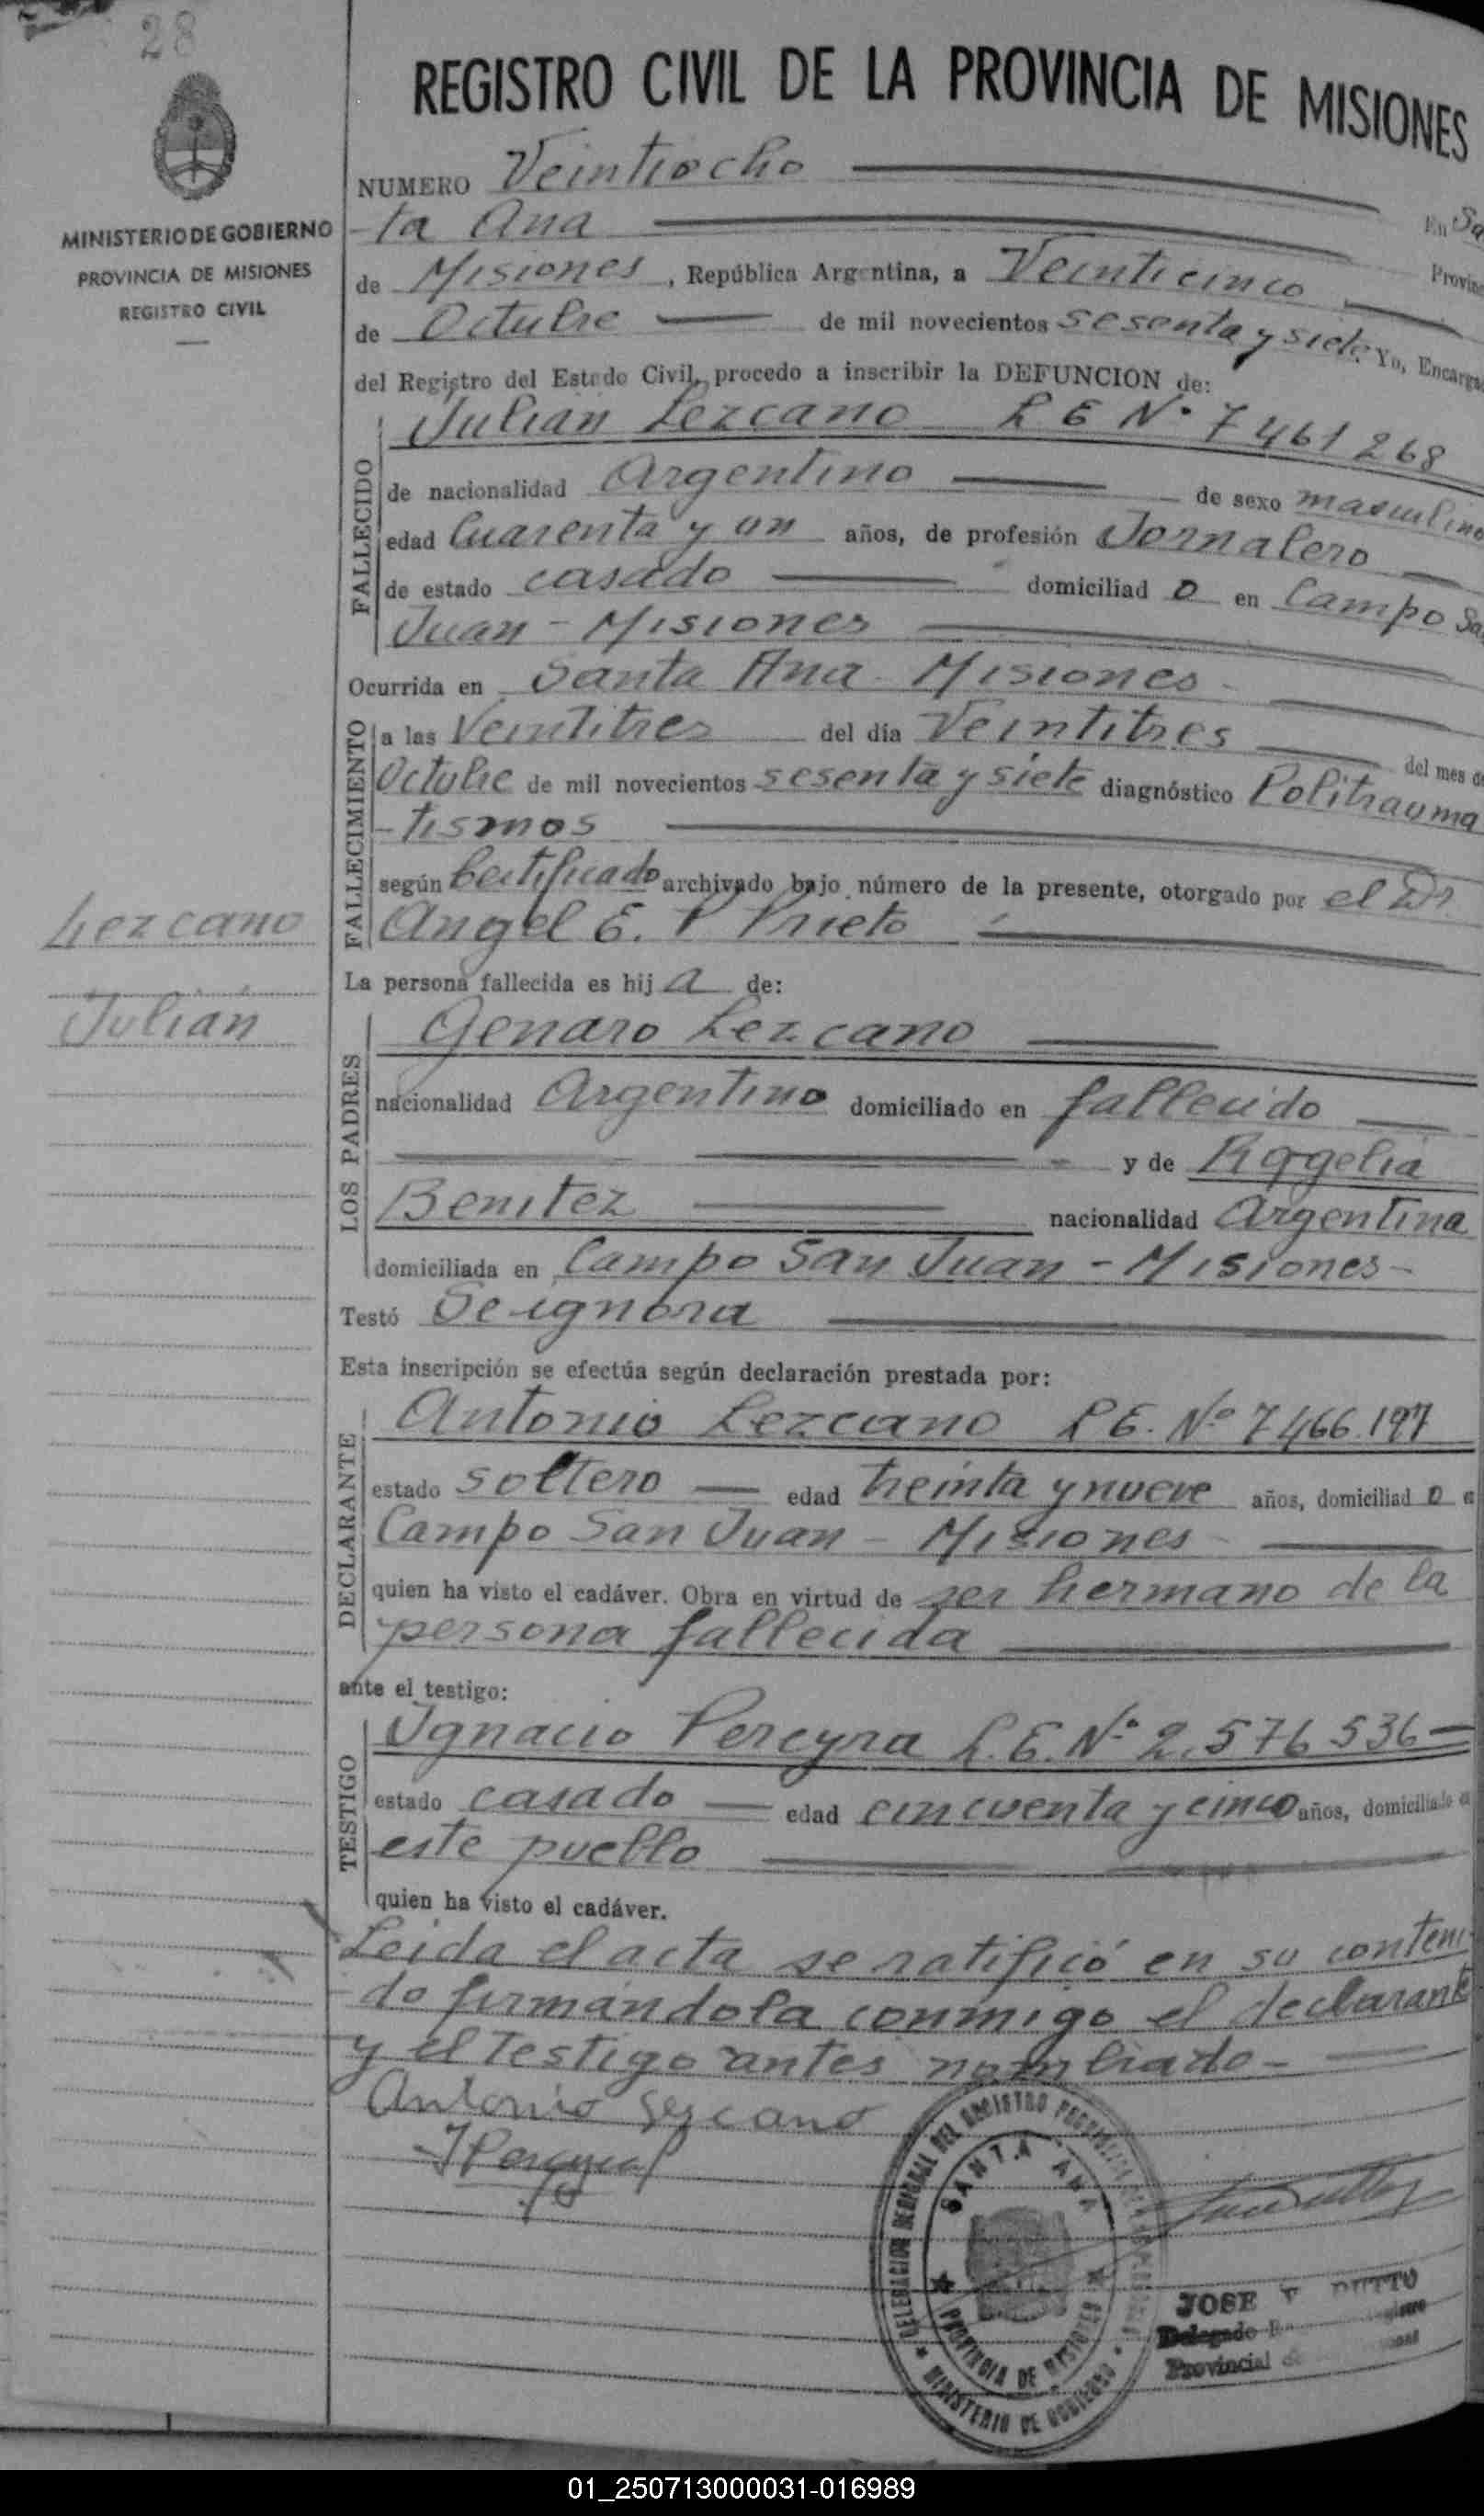 28
REGISTRO CIVIL DE LA PROVINCIA DE MISIONES
MINISTERIO DE GOBIERNO
PROVINCIA DE MISIONES
REGISTRO CIVIL
NUMERO Veintiocho
En Sa
-ta Ana
Provinc
de Misiones, República Argentina, a Veinticinco
de Octubre de mil novecientos sesenta y siete. Yo, Encarga
del Registro del Estado Civil, procedo a inscribir la DEFUNCION de:
FALLECIDO
Julian Lezcano L E Nº 7461268
de nacionalidad Argentino de sexo masculino
edad Cuarenta y un años, de profesión Jornalero
de estado casado domiciliad o en Campo Sa
Juan - Misiones
Ocurrida en Santa Ana - Misiones -
FALLECIMIENTO
a las Veintitres del día Veintitres del mes de
Octubre de mil novecientos sesenta y siete diagnóstico Politrauma
-tismos
según Certificado archivado bajo número de la presente, otorgado por el Dr.
Angel E. P Prieto
Lezcano
Julián
La persona fallecida es hij a de:
LOS PADRES
Genaro Lezcano
nacionalidad Argentino domiciliado en fallecido
y de Rogelia
Benitez nacionalidad Argentina
domiciliada en Campo San Juan - Misiones -
Testó Se ignora
Esta inscripción se efectúa según declaración prestada por:
DECLARANTE
Antonio Lezcano L E. Nº 7466.197
estado soltero edad treinta y nueve años, domiciliad o e
Campo San Juan - Misiones -
quien ha visto el cadáver. Obra en virtud de ser hermano de la
persona fallecida
ante el testigo:
TESTIGO
Ignacio Pereyra L.E. Nº 2.576536-
estado casado edad cincuenta y cinco años, domiciliado e
este pueblo
quien ha visto el cadáver.
Leida el acta se ratificó en su conteni
-do firmándola conmigo el declarante
y el testigo antes nombrado -
Antonio Lezcano
IPereyra
DELEGACION REGIONAL DEL REGISTRO
SANTA ANA
PROVINCIA DE MISIONES
MINISTERIO DE GOBIERNO
JOSE
Delegado
Provincial
01_250713000031-016989